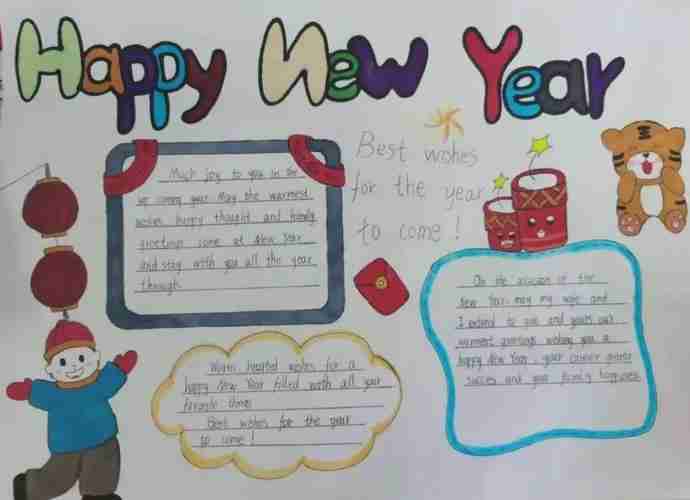 Happy New Year
Best wishes
for the year
to come!
Much joy to you in the
up coming year May the warmest
wishes happy thought and
greetings come at New Year
and stay with you all the year
through.
Warm hearted wishes for a
happy New Year filled with all your
favorite things
Best wishes for the year
to come!
On the occasion of the
New Year, may my wife and
I extend to you and yours our
warmest greetings wishing you a
happy New Year, your career
success and your family happiness